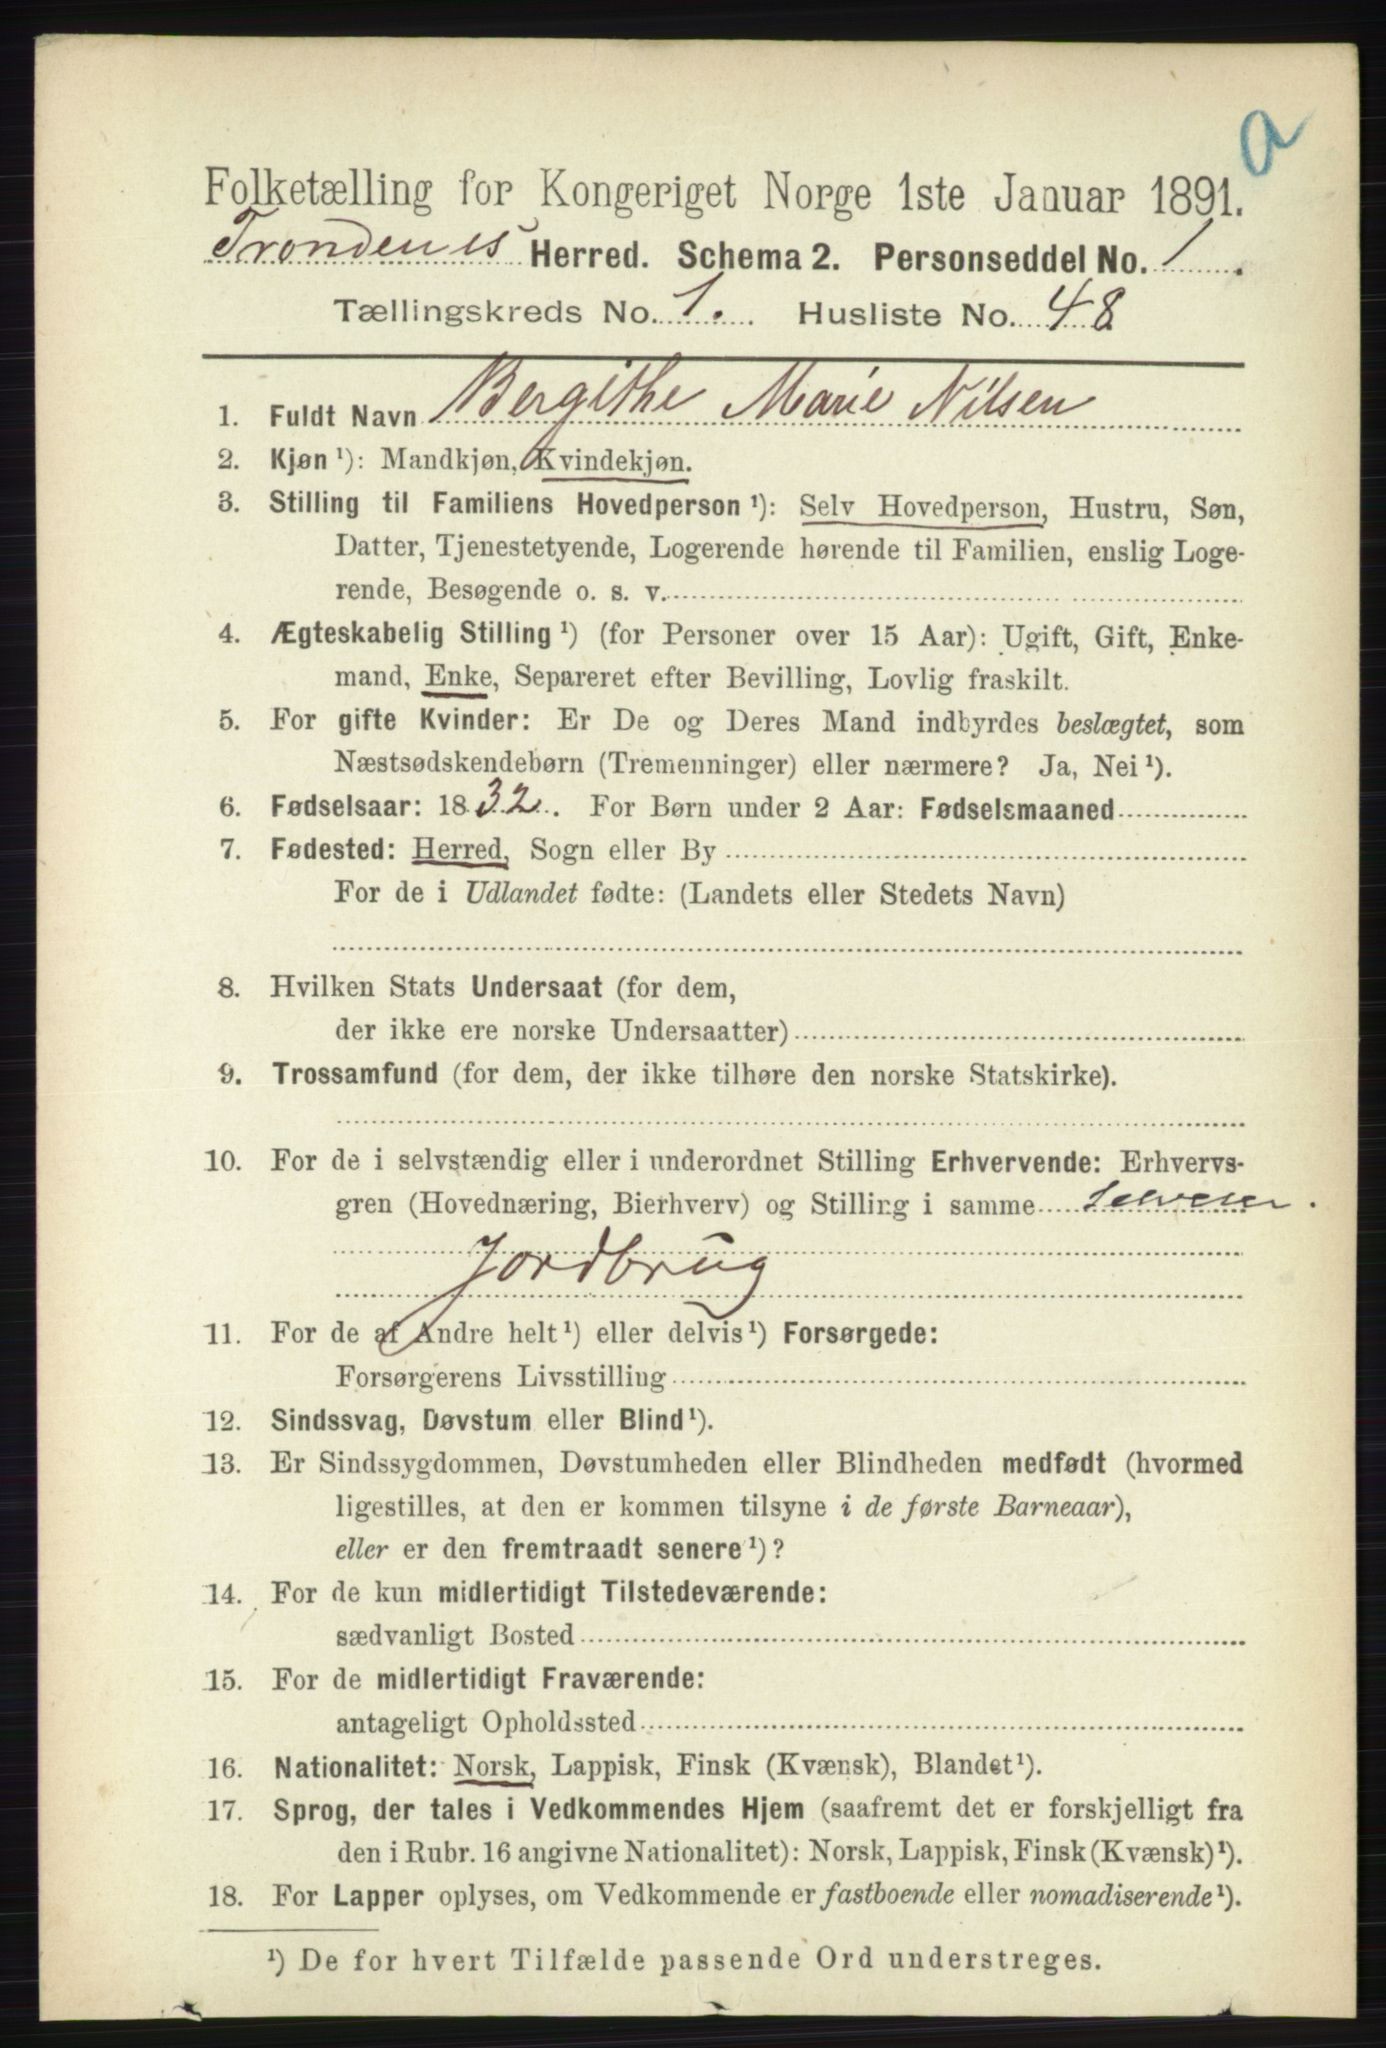 a
Folketælling for Kongeriget Norge 1ste Januar 1891.
Trondenes Herred. Schema 2. Personseddel No. 1.
Tællingskreds No. 1. Husliste No. 48
1. Fuldt Navn Bergithe Marie Nilsen
2. Kjøn ¹): Mandkjøn, Kvindekjøn.
3. Stilling til Familiens Hovedperson ¹): Selv Hovedperson, Hustru, Søn,
Datter, Tjenestetyende, Logerende hørende til Familien, enslig Loge-
rende, Besøgende o. s. v.
4. Ægteskabelig Stilling ¹) (for Personer over 15 Aar): Ugift, Gift, Enke-
mand, Enke, Separeret efter Bevilling, Lovlig fraskilt.
5. For gifte Kvinder: Er De og Deres Mand indbyrdes beslægtet, som
Næstsødskendebørn (Tremenninger) eller nærmere? Ja, Nei ¹).
6. Fødselsaar: 1832. For Børn under 2 Aar: Fødselsmaaned
7. Fødested: Herred, Sogn eller By
For de i Udlandet fødte: (Landets eller Stedets Navn)
8. Hvilken Stats Undersaat (for dem,
der ikke ere norske Undersaatter)
9. Trossamfund (for dem, der ikke tilhøre den norske Statskirke).
10. For de i selvstændig eller i underordnet Stilling Erhvervende: Erhvervs-
gren (Hovednæring, Bierhverv) og Stilling i samme Selveier.
Jordbrug
11. For de af Andre helt ¹) eller delvis ¹) Forsørgede:
Forsørgerens Livsstilling
12. Sindssvag, Døvstum eller Blind ¹).
13. Er Sindssygdommen, Døvstumheden eller Blindheden medfødt (hvormed
ligestilles, at den er kommen tilsyne i de første Barneaar),
eller er den fremtraadt senere ¹)?
14. For de kun midlertidigt Tilstedeværende:
sædvanligt Bosted
15. For de midlertidigt Fraværende:
antageligt Opholdssted
16. Nationalitet: Norsk, Lappisk, Finsk (Kvænsk), Blandet ¹).
17. Sprog, der tales i Vedkommendes Hjem (saafremt det er forskjelligt fra
den i Rubr. 16 angivne Nationalitet): Norsk, Lappisk, Finsk (Kvænsk) ¹).
18. For Lapper oplyses, om Vedkommende er fastboende eller nomadiserende ¹).
¹) De for hvert Tilfælde passende Ord understreges.